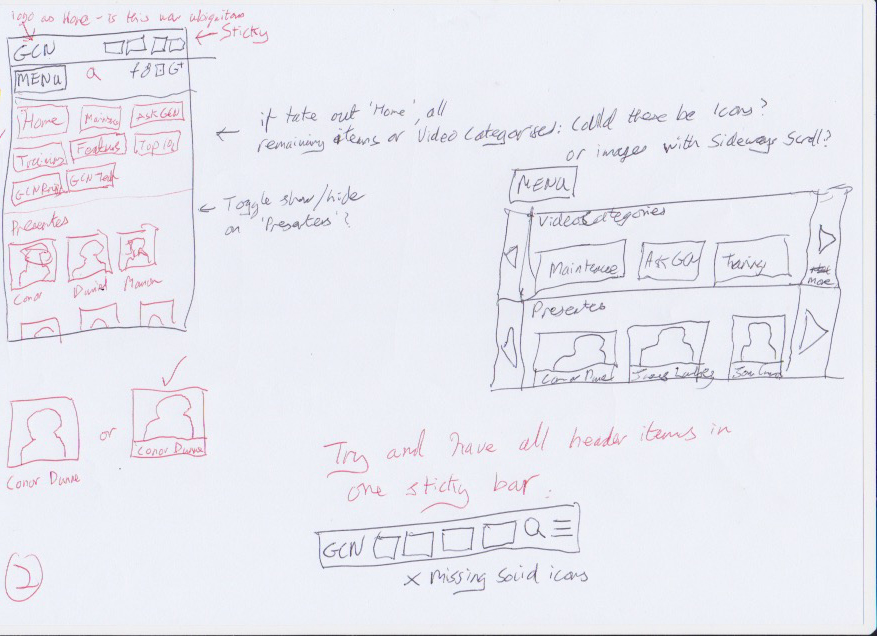 logo as Home - is this now ubiquitous
GCN
← Sticky
MENU
Q
f
G+
Home
Mainten
ASKGCN
Training
Features
TOP 10
GCN Tech
← if take out 'Home', all
remaining items or Video Categories: Could these be Icons?
or images with Sideways Scroll?
← Toggle show/hide
on 'Presenters'?
Presenters
Conor
Daniel
MENU
Video Categories
Maintenance
ASK GCN
Training
More
Presenters
Conor Dunne
or
Conor Dunne
Conor Dunne
Try and have all header items in
one sticky bar.
GCN
x Missing Social icons
2